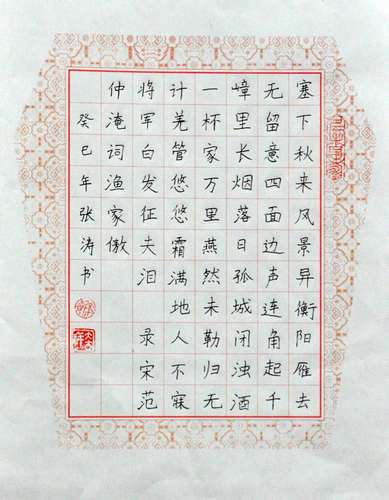 塞下秋来风景异衡阳雁去
无留意四面边声连角起千
嶂里长烟落日孤城闭浊酒
一杯家万里燕然未勒归无
计羌管悠悠霜满地人不寐
将军白发征夫泪 录宋范
仲淹词渔家傲
癸巳年张涛书